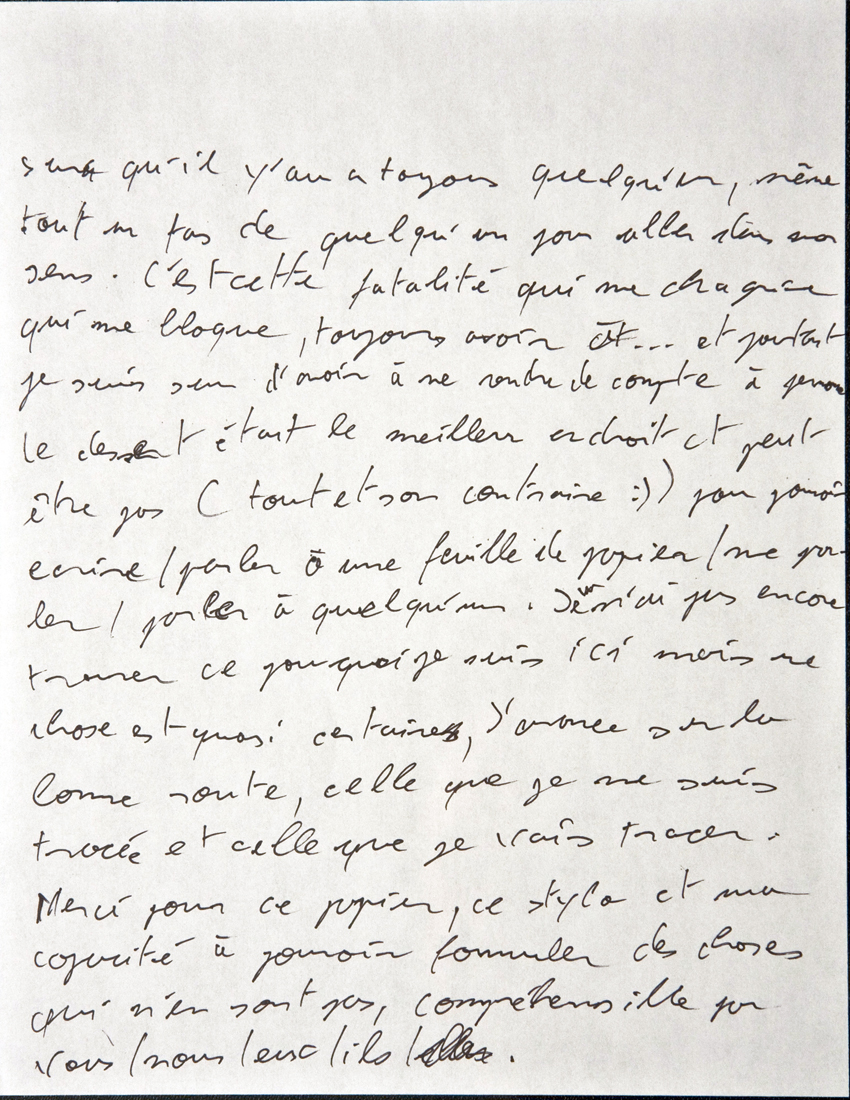 qu'il y'aura toujours quelqu'un, même
tout un tas de quelqu'un pour aller dans mon
sens. C'est cette fatalité qui me chagrine
qui me bloque, toujours avoir ... et pourtant
je suis sur d'avoir à me rendre de compte à
le était le meilleur endroit et peut
être pas (tout et son contraire :)) pour pouvoir
ecrire / parler à une feuille de papier / me par-
ler / parler à quelqu'un. pas encore
trouver ce pourquoi je suis ici mais une
chose est quasi certaine, j'avance sur la
bonne route, celle que je me suis
tracée et celle que je vais tracer.
Merci pour ce papier, ce stylo et ma
capacité à pouvoir formuler des choses
qui n'en sont pas, par
vous / nous / eux / ils /